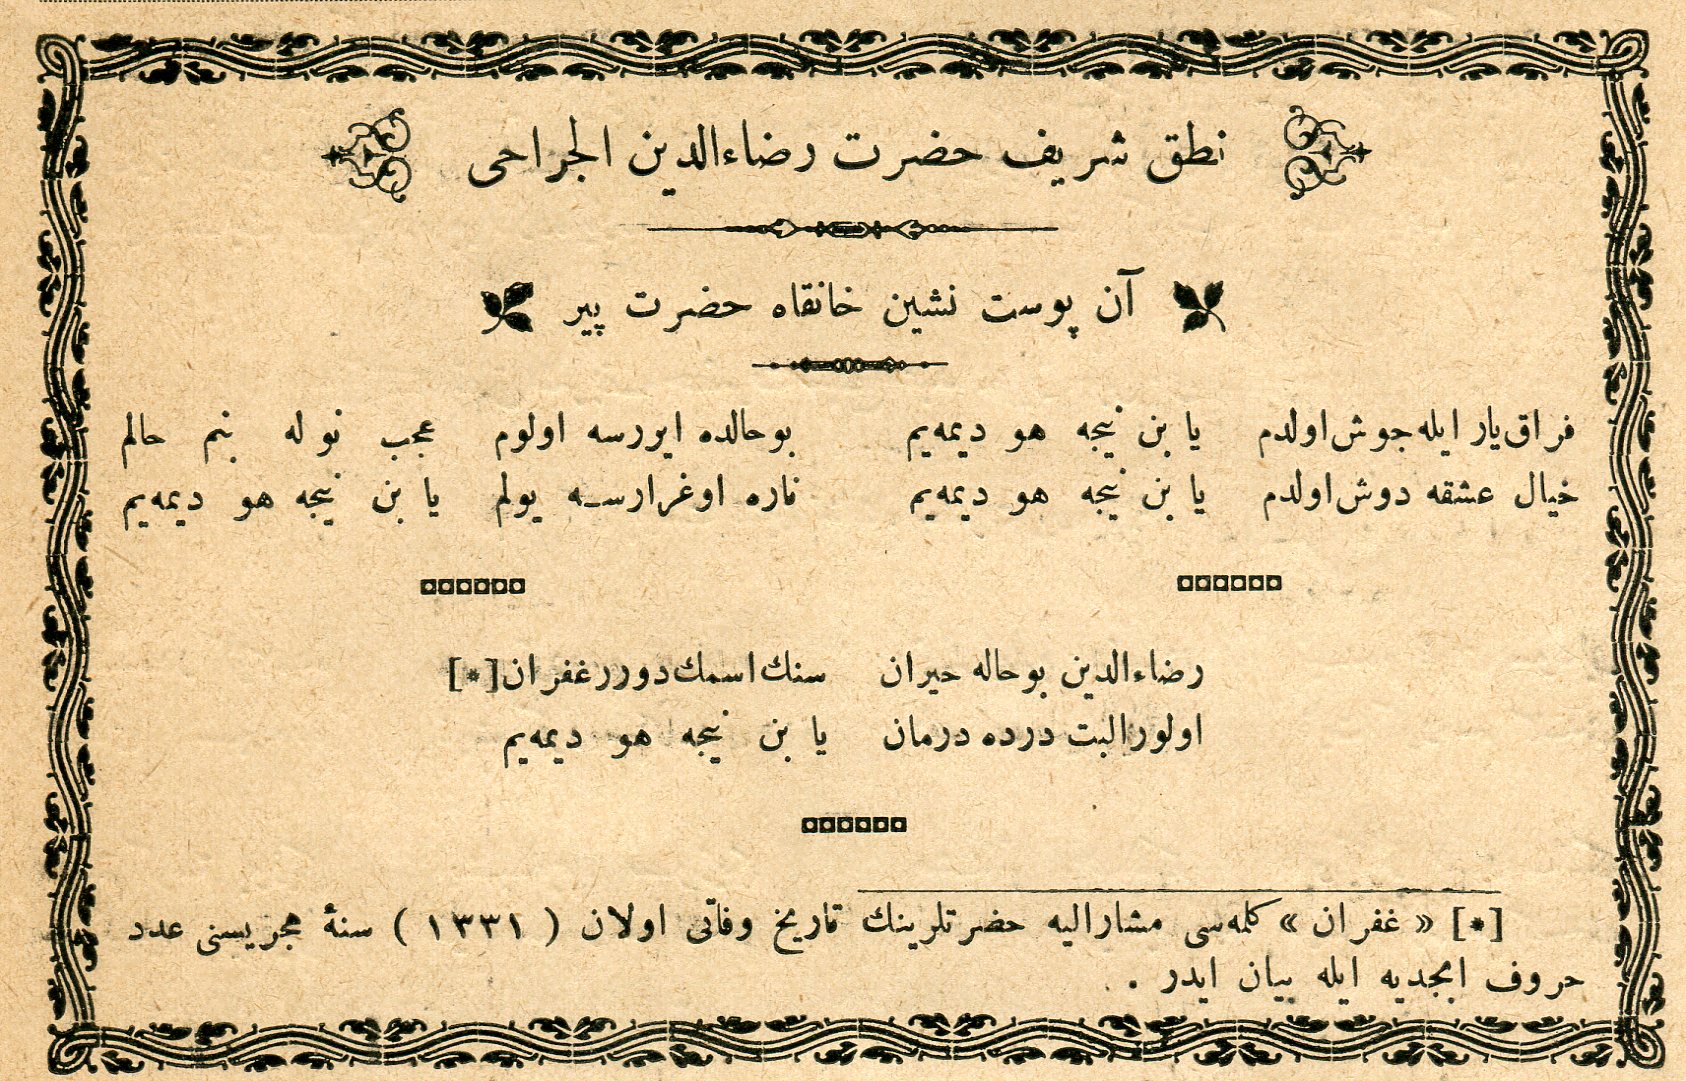 نطق شريف حضرت رضاءالدين الجراحى
آن پوست نشين خانقاه حضرت پير
فراق يار ايله جوش اولدم يا بن نيجه هو ديمه‌يم بو حالده ايررسه اولوم عجب نوله بنم حالم
خيال عشقه دوش اولدم يا بن نيجه هو ديمه‌يم ناره اوغرارسه يولم يا بن نيجه هو ديمه‌يم
رضاءالدين بو حاله حيران سنك اسمك دورر غفران [*]
اولور البت درده درمان يا بن نيجه هو ديمه‌يم
[*] « غفران » كلمه‌سى مشاراليه حضرتلرينك تاريخ وفاتى اولان ( ١٣٣١ ) سنهٔ هجريسنى عدد
حروف ابجديه ايله بيان ايدر .